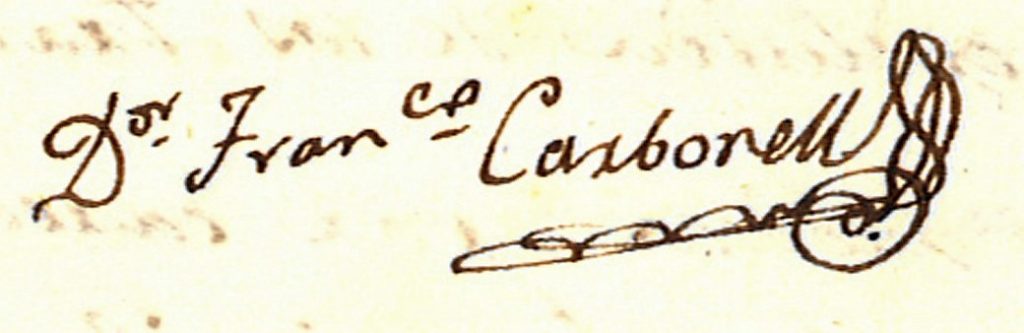 Dor. Franco Carbonell